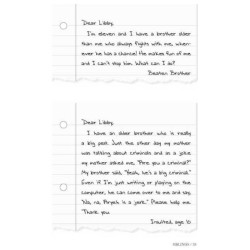 Dear Libby,
I'm eleven and I have a brother older
than me who always fights with me, when-
ever he has a chance! He makes fun of me
and I can't stop him. What can I do?
Beaten Brother
Dear Libby,
I have an older brother who is really
a big pest. Just the other day my mother
was talking about criminals and as a joke
my mother asked me, "Are you a criminal?"
My brother said, "Yeah, he's a big criminal."
Even if I'm just writing or playing on the
computer, he can come over to me and say,
"Na, na, is a jerk." Please help me.
Thank you.
Insulted, age 10